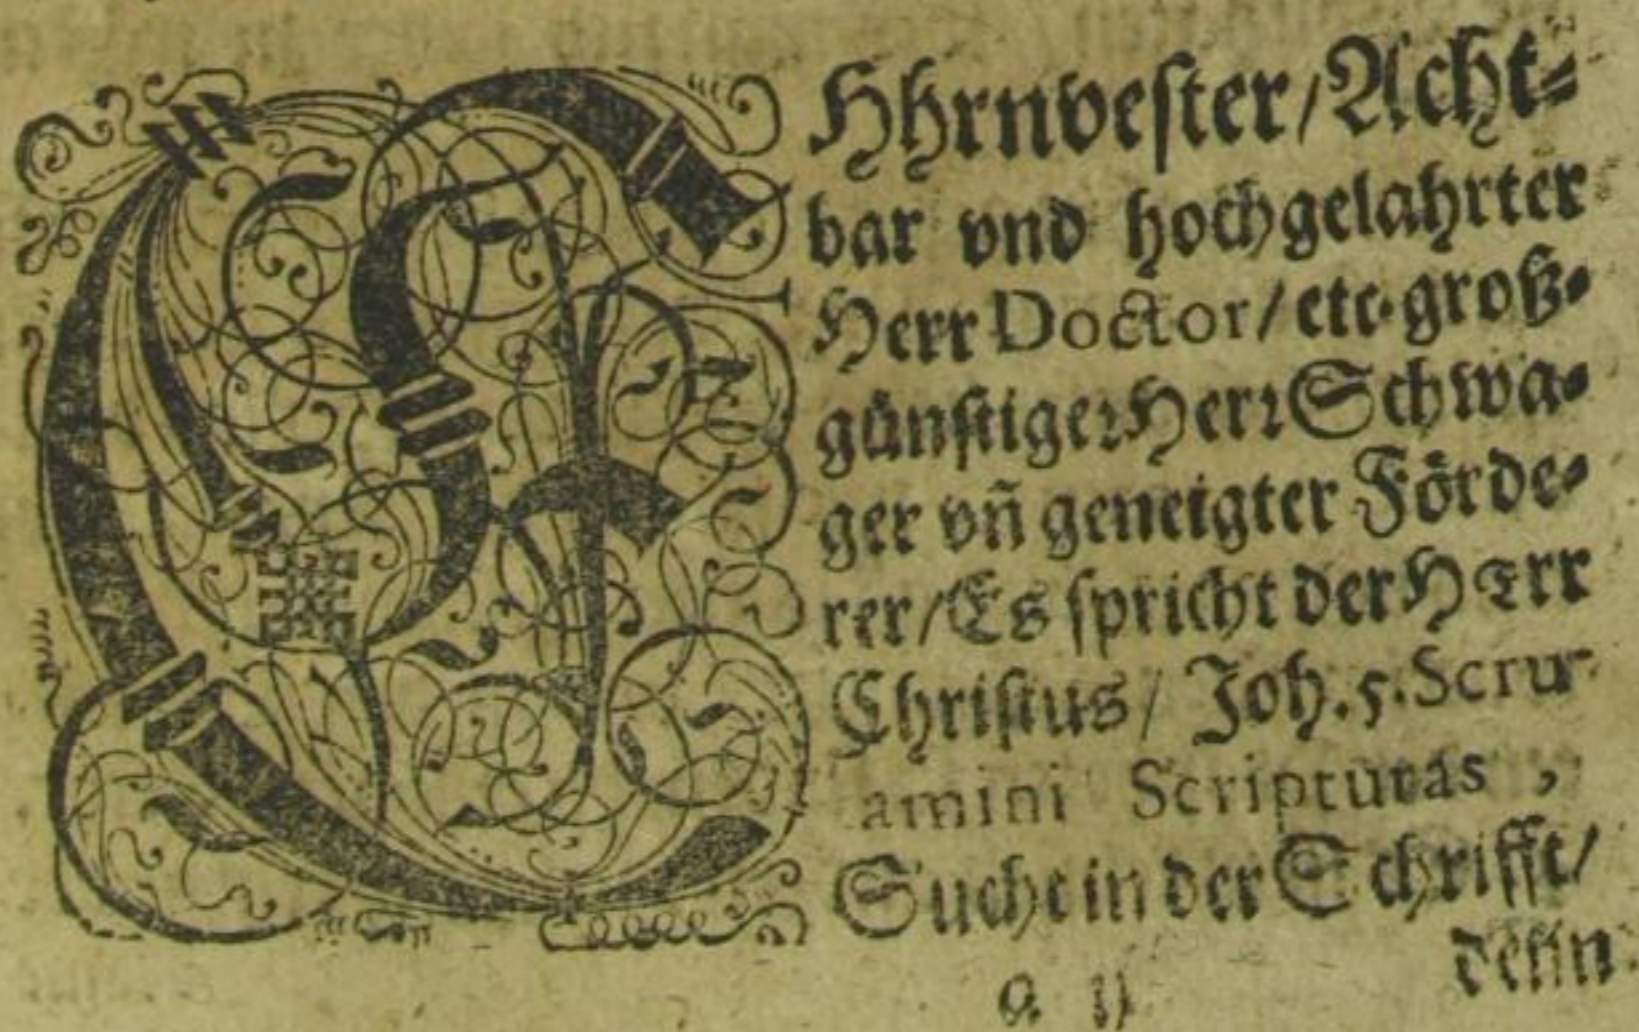 EHhrnvester / Acht-
bar vnd hochgelahrter
Herr Doctor / etc. groß-
günstiger Herr Schwa-
ger vñ geneigter Förde-
rer / Es spricht der HErr
Christus / Joh. 5. Scru-
amini Scripturas,
Sucht in der Schrifft /
denn
a ij